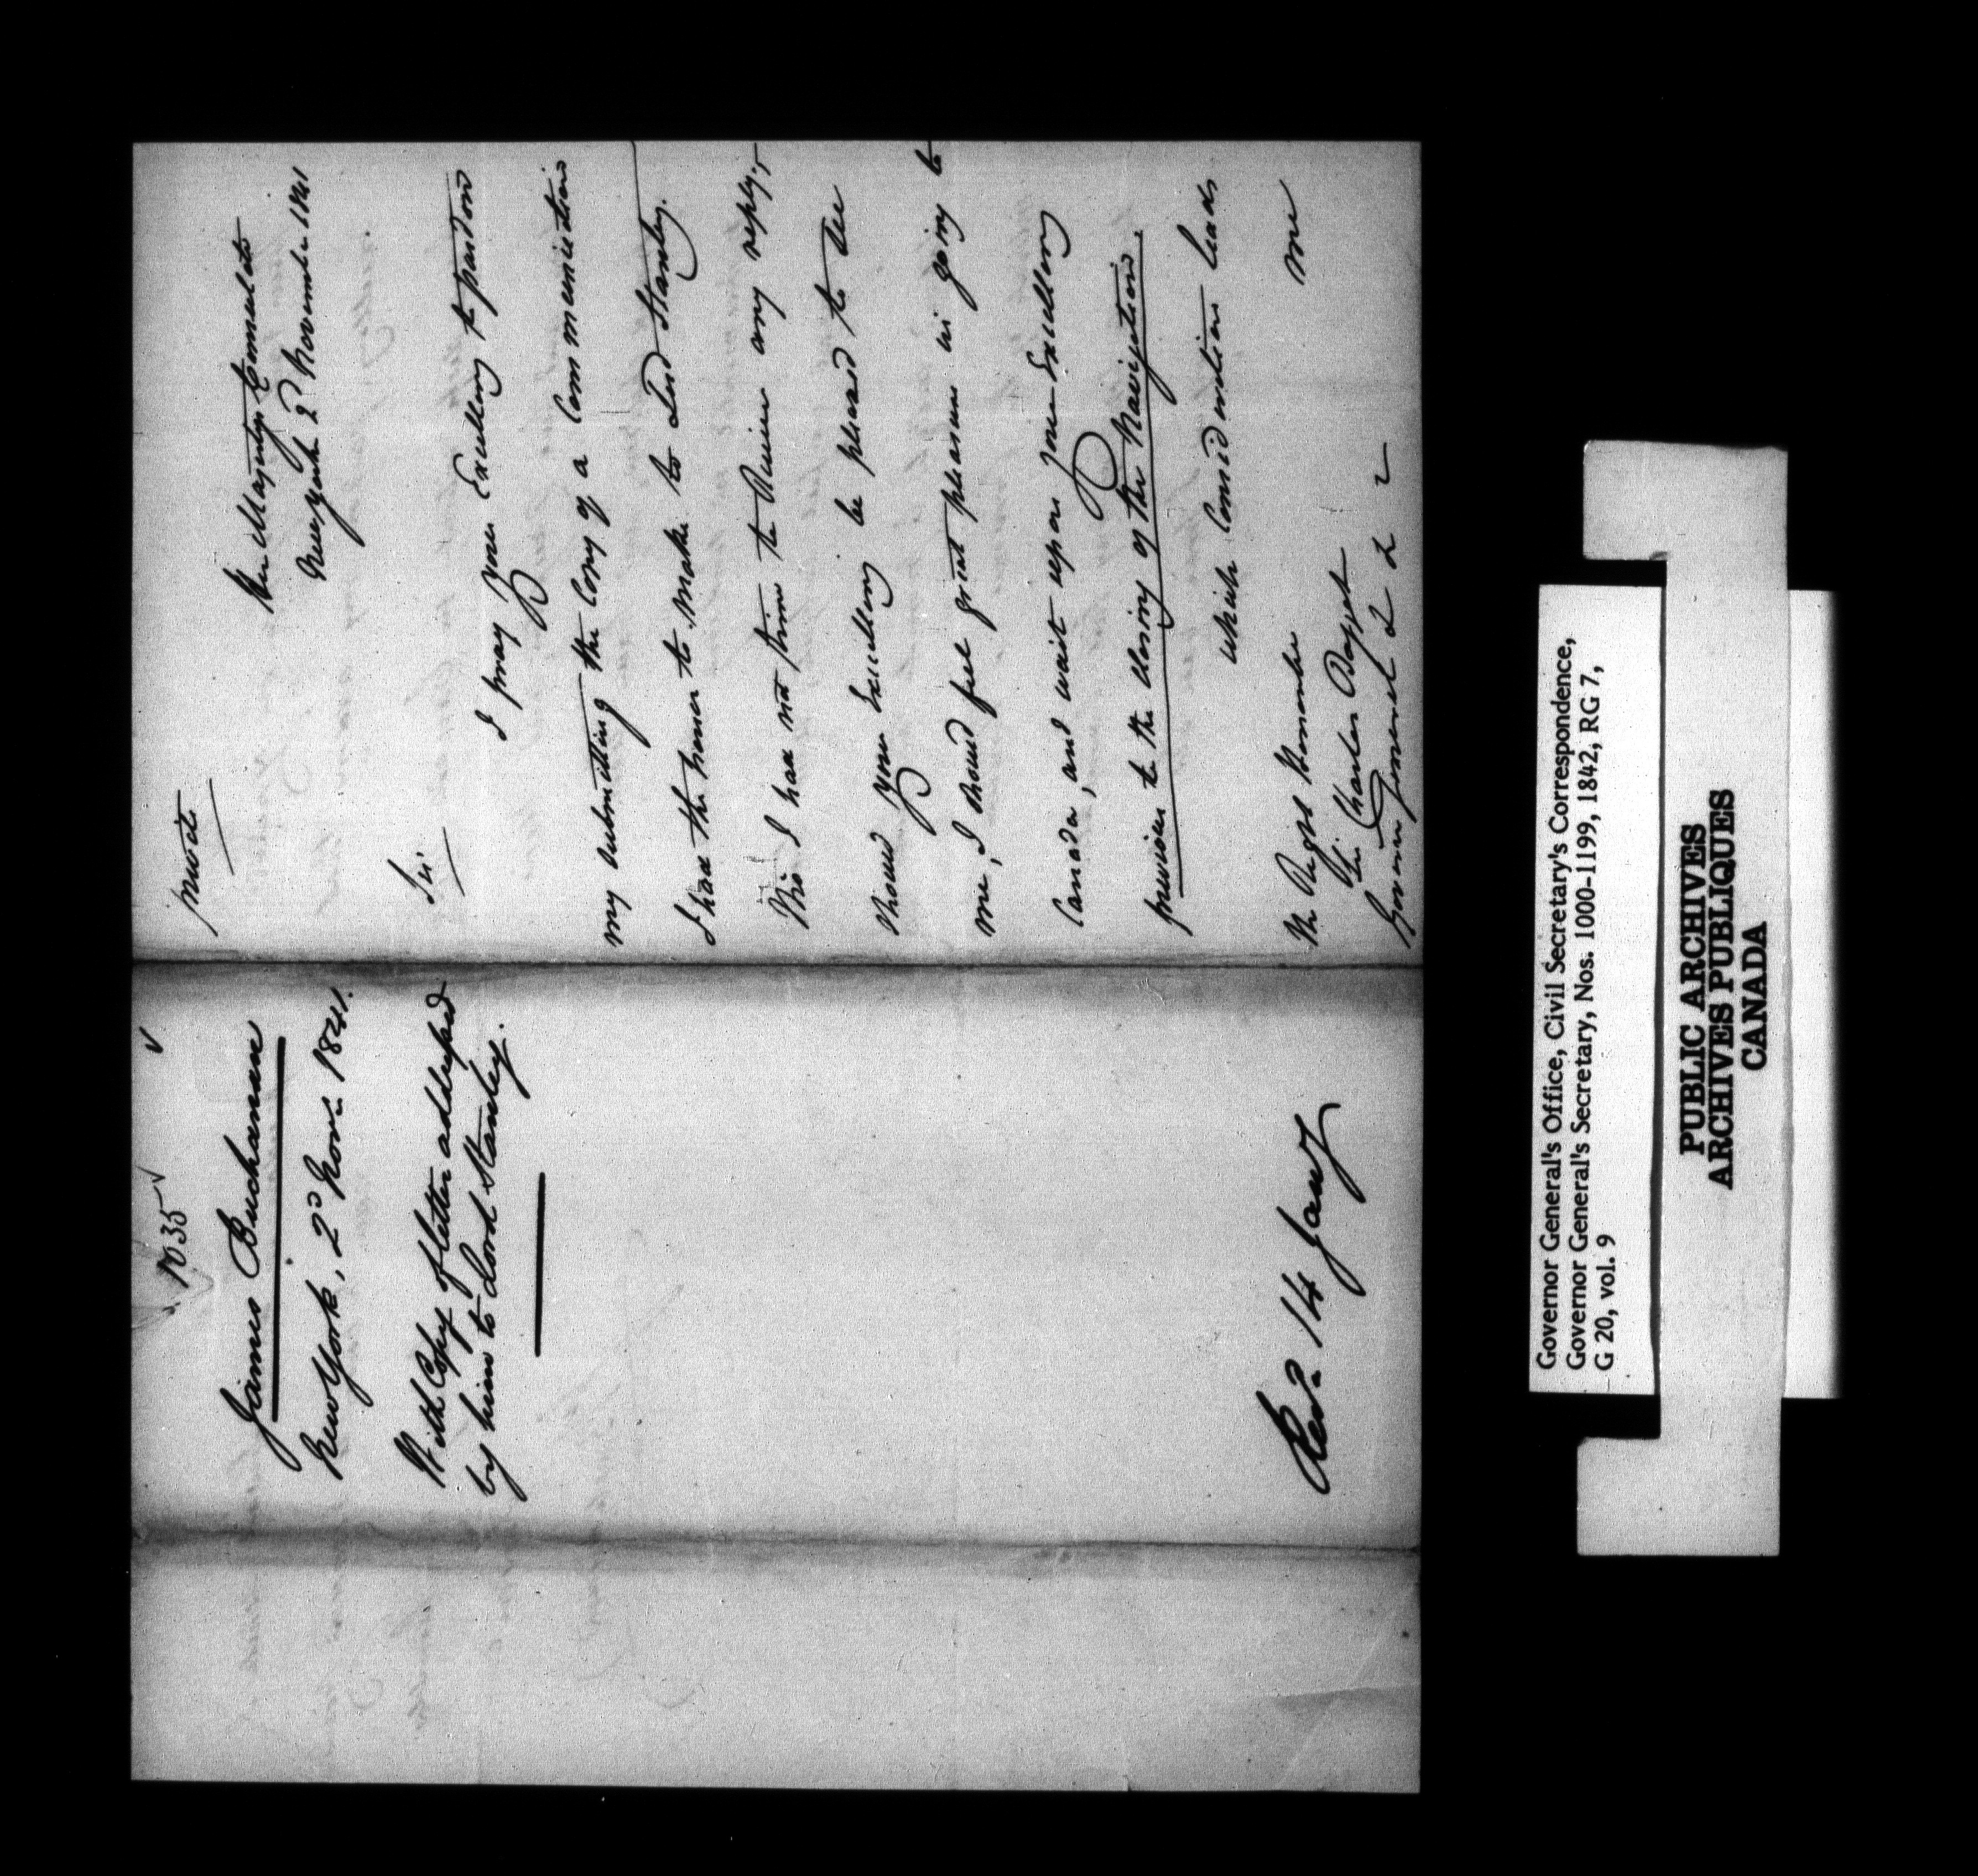 1035
James Buchanan
New York, 2d Novr. 1841.
With Copy of letter addressed
by him to Lord Stanley.
Recd. 14 Jany
private
Her Majestys Consulate
New York 2d November 1841
Sir
I pray your Excellency to pardon
my submitting the Copy of a Communication
I had the honor to make to Lord Stanley.
Tho I had not time to receive any reply,
should your Excellency be pleased to see
me, I shoud feel great pleasure in going to
Canada, and wait upon your Excellency
previous to the closing of the Navigation.
which Consideration leads
me
The Right Honorable
Sir Charles Bagot
Governor General &c &c &c
Governor General's Office, Civil Secretary's Correspondence,
Governor General's Secretary, Nos. 1000-1199, 1842, RG 7,
G 20, vol. 9
PUBLIC ARCHIVES
ARCHIVES PUBLIQUES
CANADA